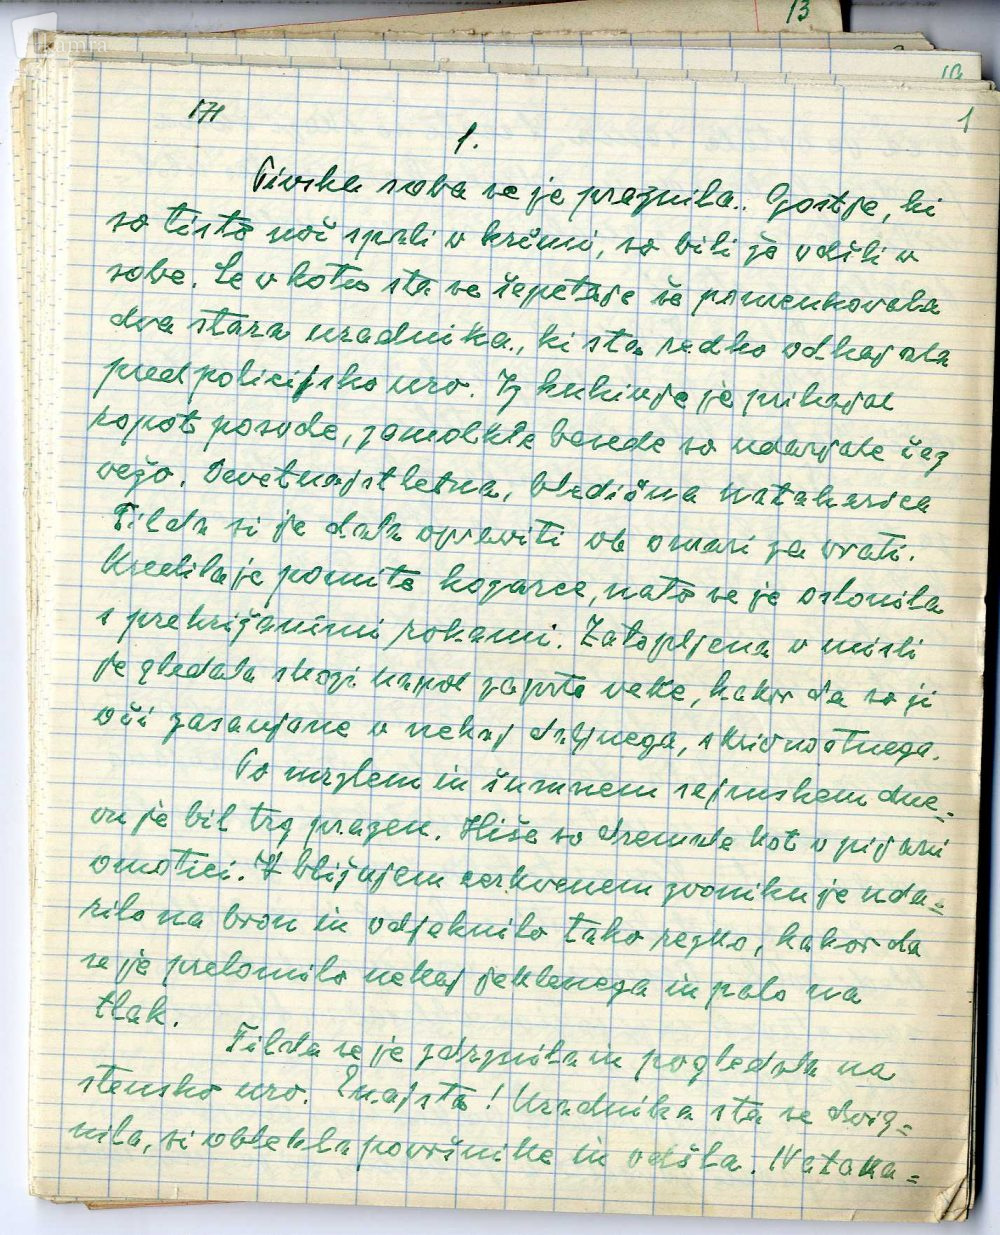 13
kamra
171
1
1.
Pivska soba se je praznila. Gostje, ki
so tisto noč spali v krčmi, so bili že odšli v
sobe. Le v kotu sta se šepetaje še pomenkovala
dva stara uradnika, ki sta redko odhajala
pred policijsko uro. Iz kuhinje je prihajal
ropot posode, zamolkle besede so udarjale čez
vežo. Devetnajstletna, bledična natakarica
Tilda si je dala opraviti ob omari za vrati.
Uredila je pomite kozarce, nato se je oslonila
s prekrižanimi rokami. Zatopljena v misli
je gledala skozi napol zaprte veke, kakor da so ji
oči zasanjane v nekaj daljnega, skrivnostnega.
Po mrzlem in šumnem sejmskem dne-
vu je bil trg prazen. Hiše so dremale kot v pijani
omotici. V bližnjem cerkvenem zvoniku je uda-
rilo na bron in odjeknilo tako rezko, kakor da
se je prelomilo nekaj jeklenega in palo na
tlak.
Tilda se je zdrznila in pogledala na
stensko uro. Enajsta! Uradnika sta se dvig-
nila, si oblekla površnike in odšla. Nataka-